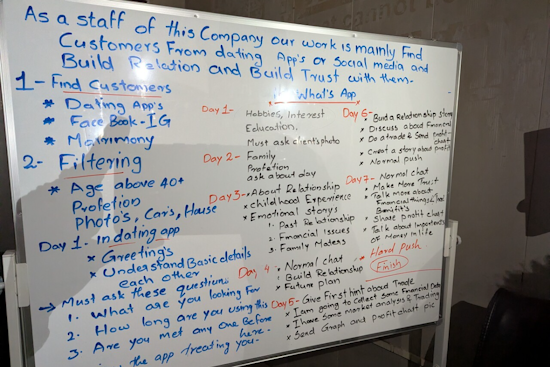 As a staff of this Company our work is mainly Find
Customers From dating App's or Social media and
Build Relation and Build Trust with them.
1- Find Customers
* Dating App's
* Face Book - IG
* Matrimony
2- Filtering
* Age above 40+
Profetion
Photo's, Car's, House
Day 1- In dating app
* Greeting's
* Understand Basic details
each other
→ Must ask these question:
1. What are you looking For
2. How long are you using this
3. Are you met any one Before
here.
the app treating you-
What's App
Day 1- Hobbies, Interest
Education,
Must ask client's photo
Day 2- Family
Profetion
ask about day
Day 3- About Relationship
* Childhood Experience
* Emotional storys
1. Past Relationship
2. Financial Issues
3. Family Maters
Day 4 * Normal chat
* Build Relationship
* Future plan
Day 5- Give First hint about Trade
* I am going to Collect some Financial Data
* I have some market analysis & Trading
* Send Graph and profit chart pic
Day 6- Build a Relationship story
* Discuss about Financial
* Do a trade & Send profit-
chart
* Creat a story about profit
* Normal push
Day 7- * Normal chat
* Make More Trust
* Talk more about
Financial things & Trad
Benefit's
* Share profit chart
* Talk about Importents
of Money in life
* Hard Push
Finish